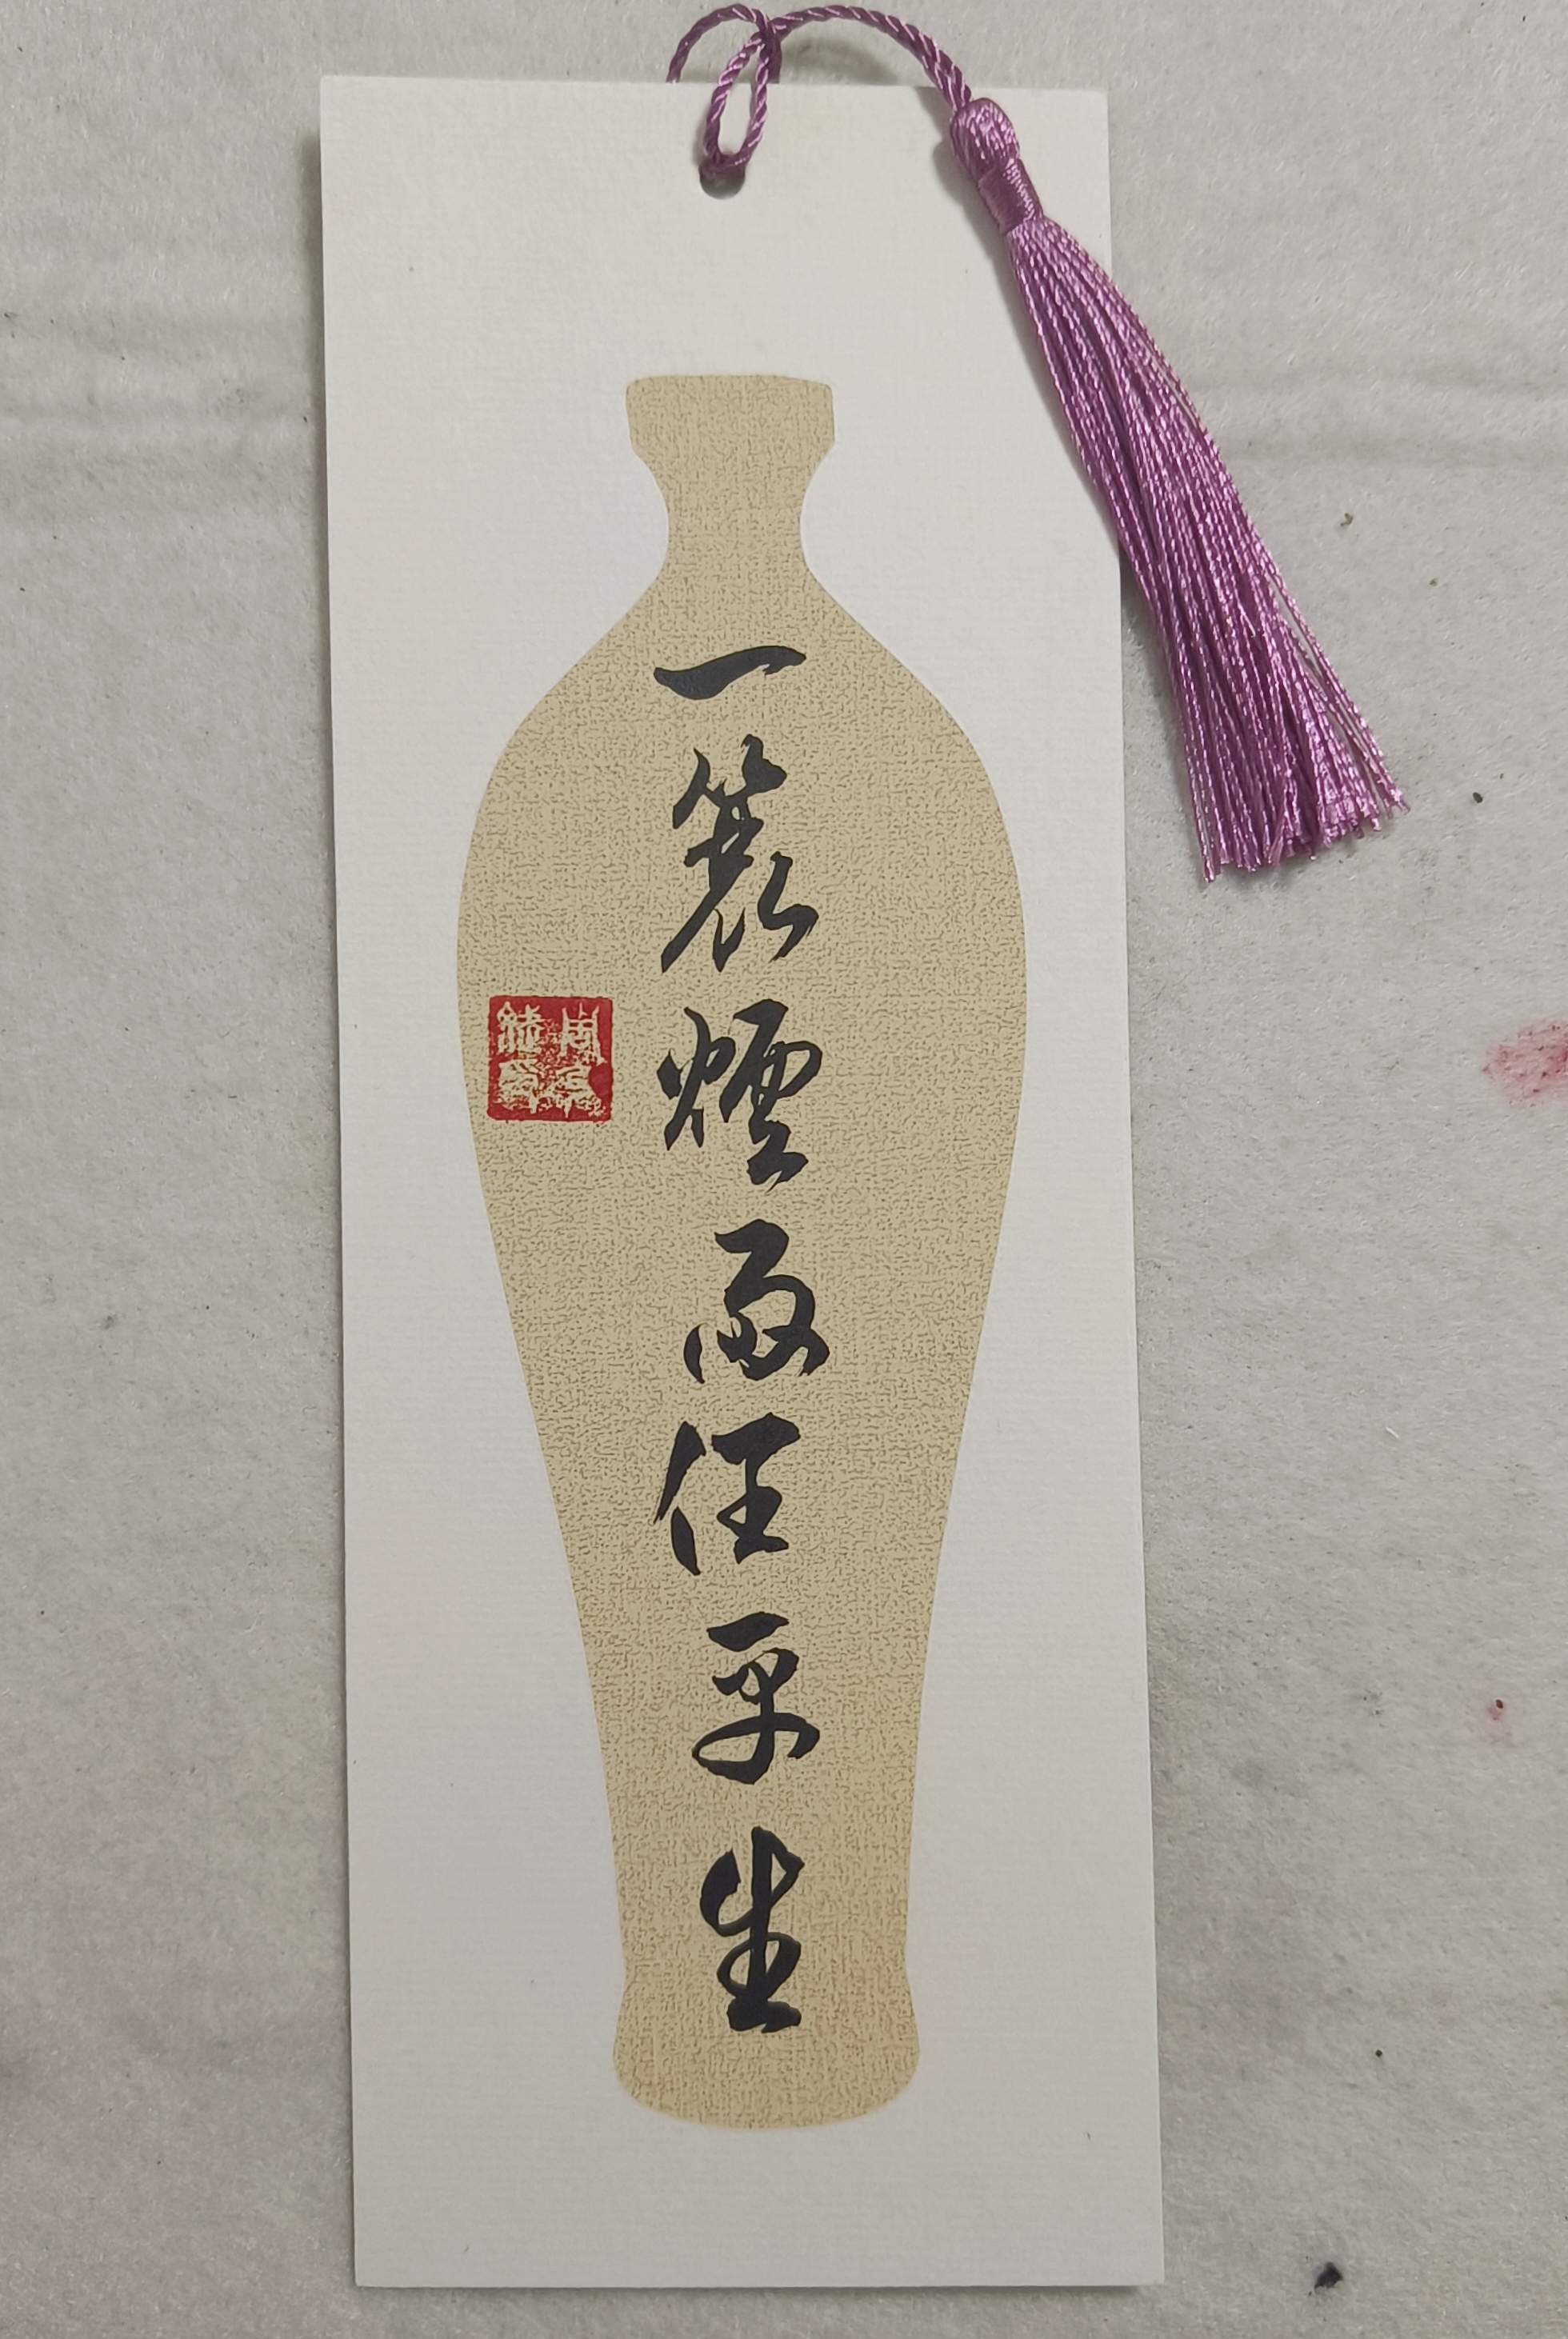 一簑煙雨任平生